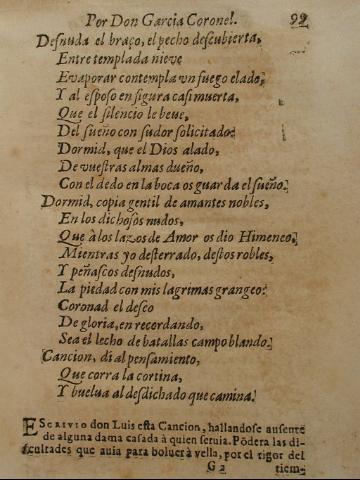 Por Don Garcia Coronel. 99
Desnuda el braço, el pecho descubierta,
Entre templada nieve
Evaporar contempla vn fuego elado,
Y al esposo en figura casi muerta,
Que el silencio le beue,
Del sueño con sudor solicitado.
Dormid, que el Dios alado,
De vuestras almas dueño,
Con el dedo en la boca os guarda el sueño.
Dormid, copia gentil de amantes nobles,
En los dichosos nudos,
Que à los lazos de Amor os dio Himeneo,
Mientras yo desterrado, destos robles,
Y peñascos desnudos,
La piedad con mis lagrimas grangeo:
Coronad el deseo
De gloria, en recordando,
Sea el lecho de batallas campo blando.
Cancion, di al pensamiento,
Que corra la cortina,
Y buelua al desdichado que camina.
ESCRIVIO don Luis esta Cancion, hallandose ausente
de alguna dama casada à quien seruia. Pōdera las di-
ficultades que auia para boluer à vella, por el rigor del
G 2 tiem-